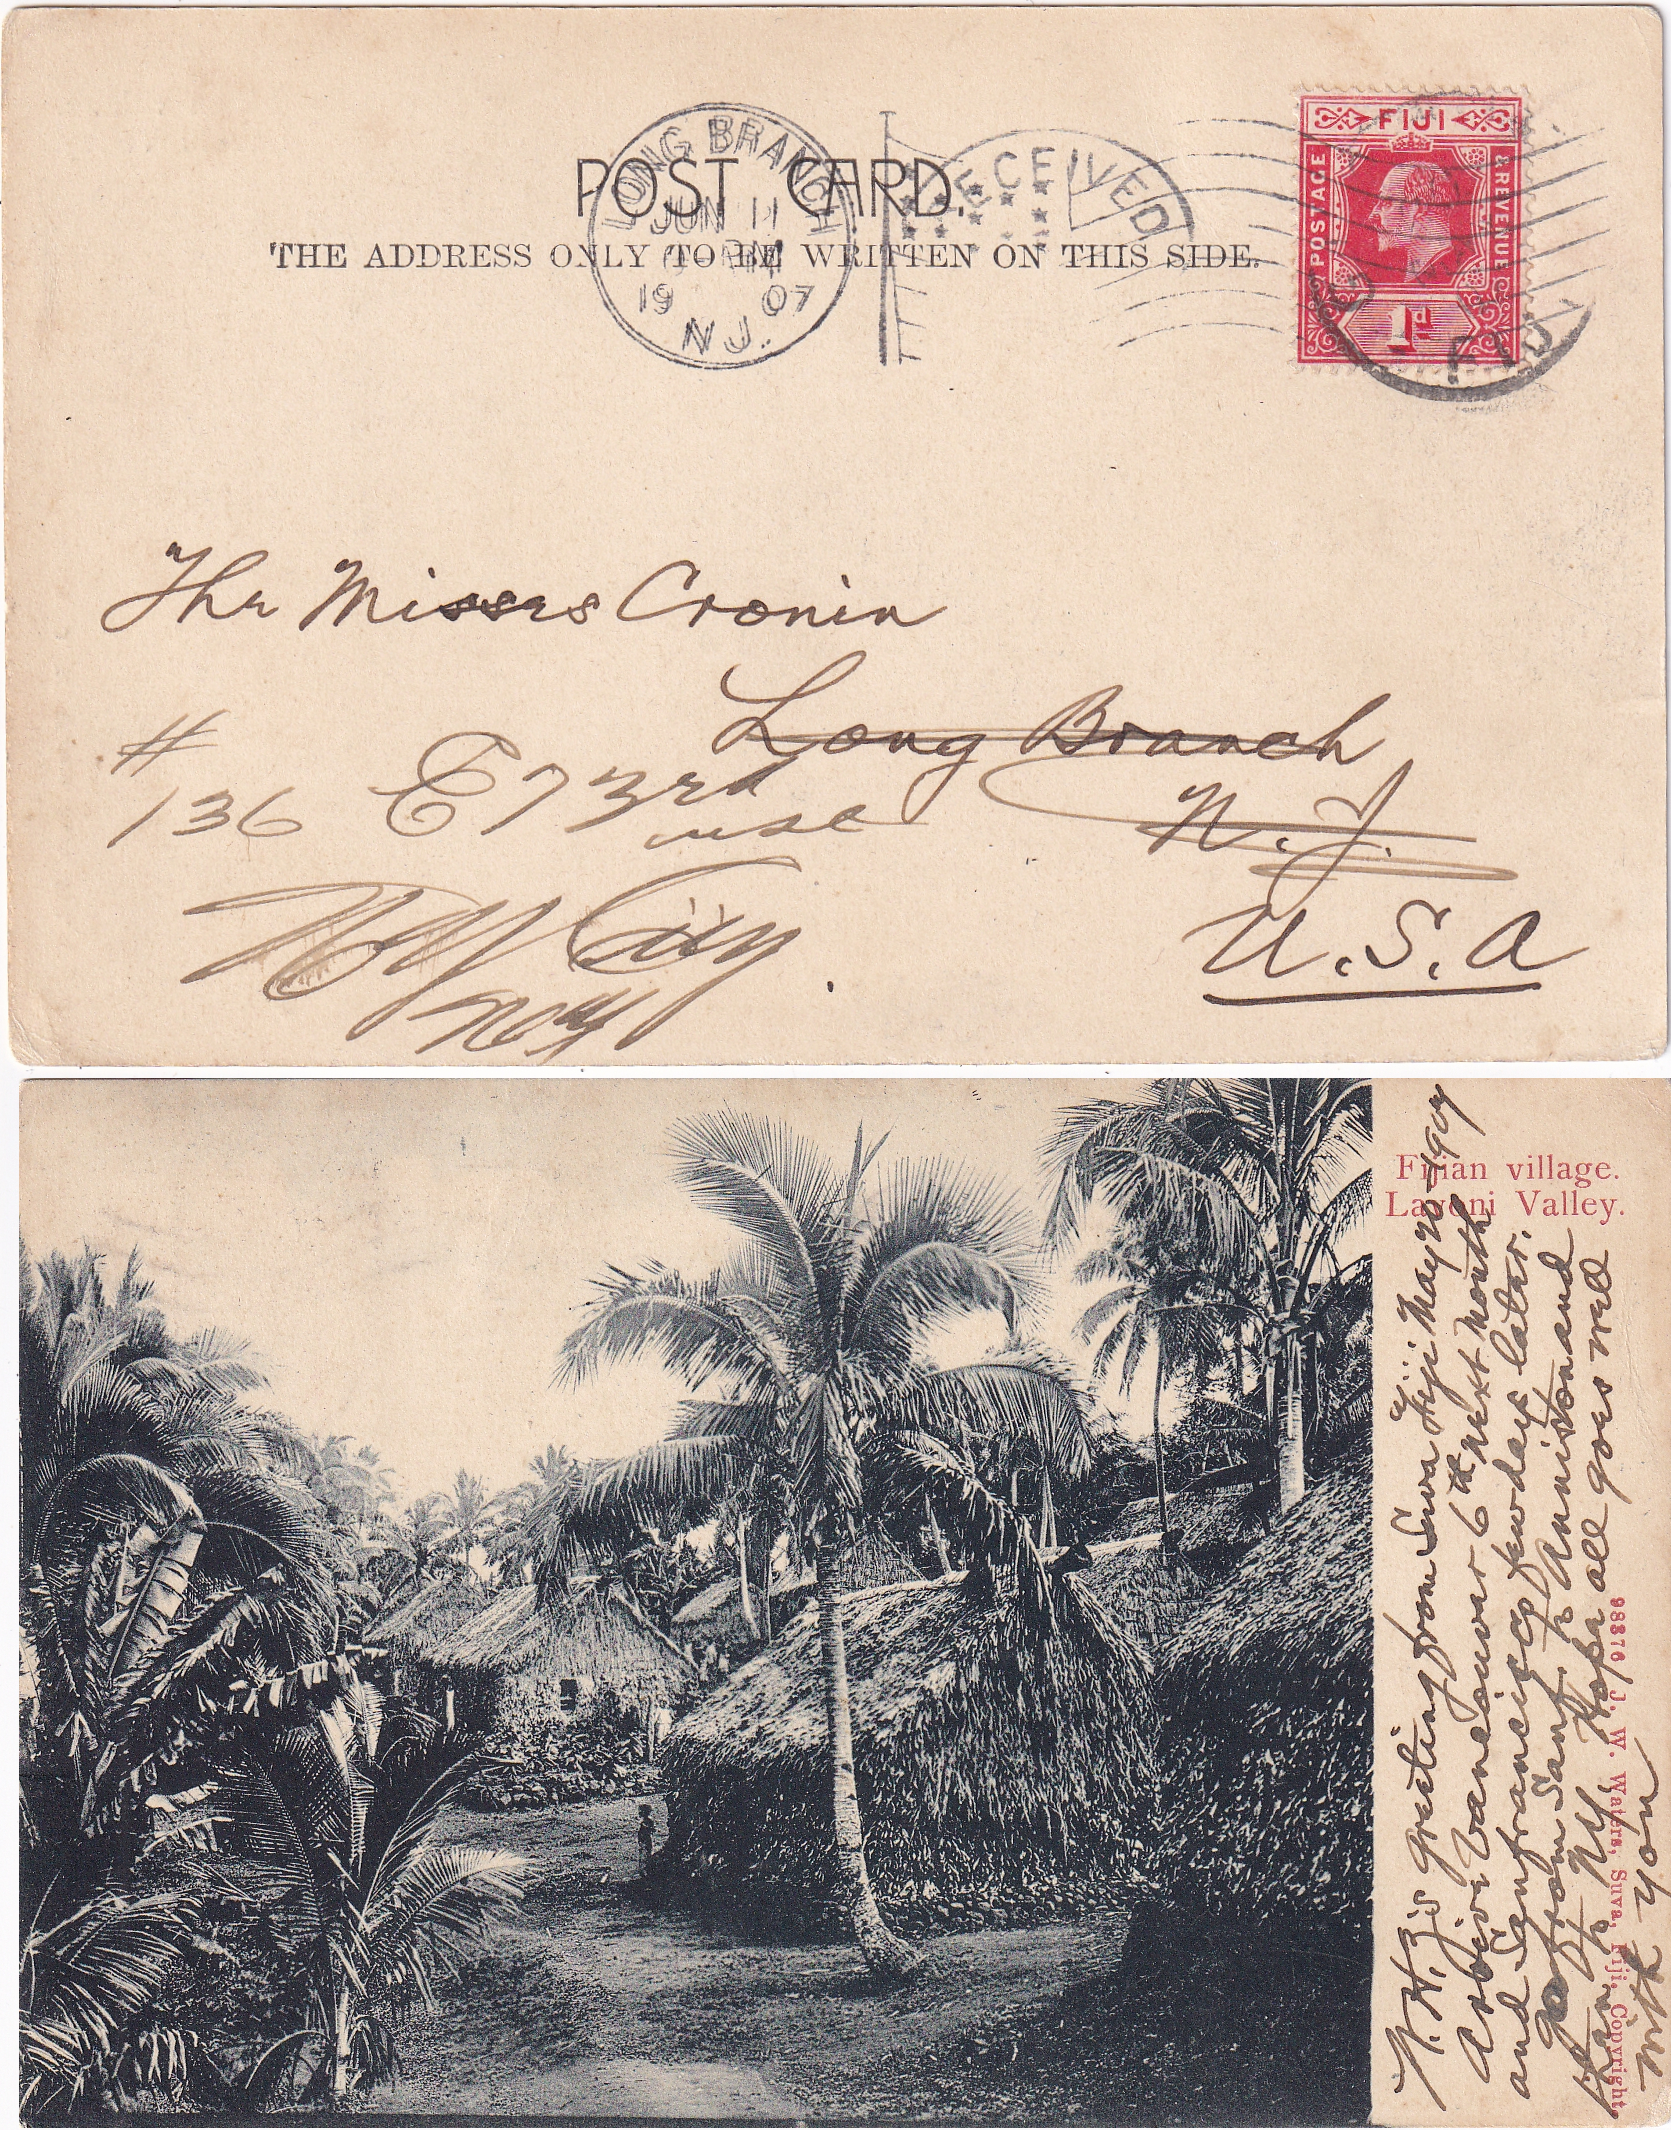 POST CARD.
THE ADDRESS ONLY TO BE WRITTEN ON THIS SIDE.
LONG BRANCH
JUN 11
PM
19 07
N.J.
RECEIVED
FIJI
POSTAGE
& REVENUE
1d
FIJI
The Misses Cronin
Long Branch
N.J.
U.S.A
#
136 E 73rd
NY City
Fijian village.
Lavoni Valley.
98376 J. W. Waters, Suva, Fiji, Copyright
greeting from Suva Fiji May 20 1907
Arrive Vancouver 6th next month
and Sanfrancisco few days later.
Go from Sanf. to Anniston and
then to NY Hope all goes well
with you